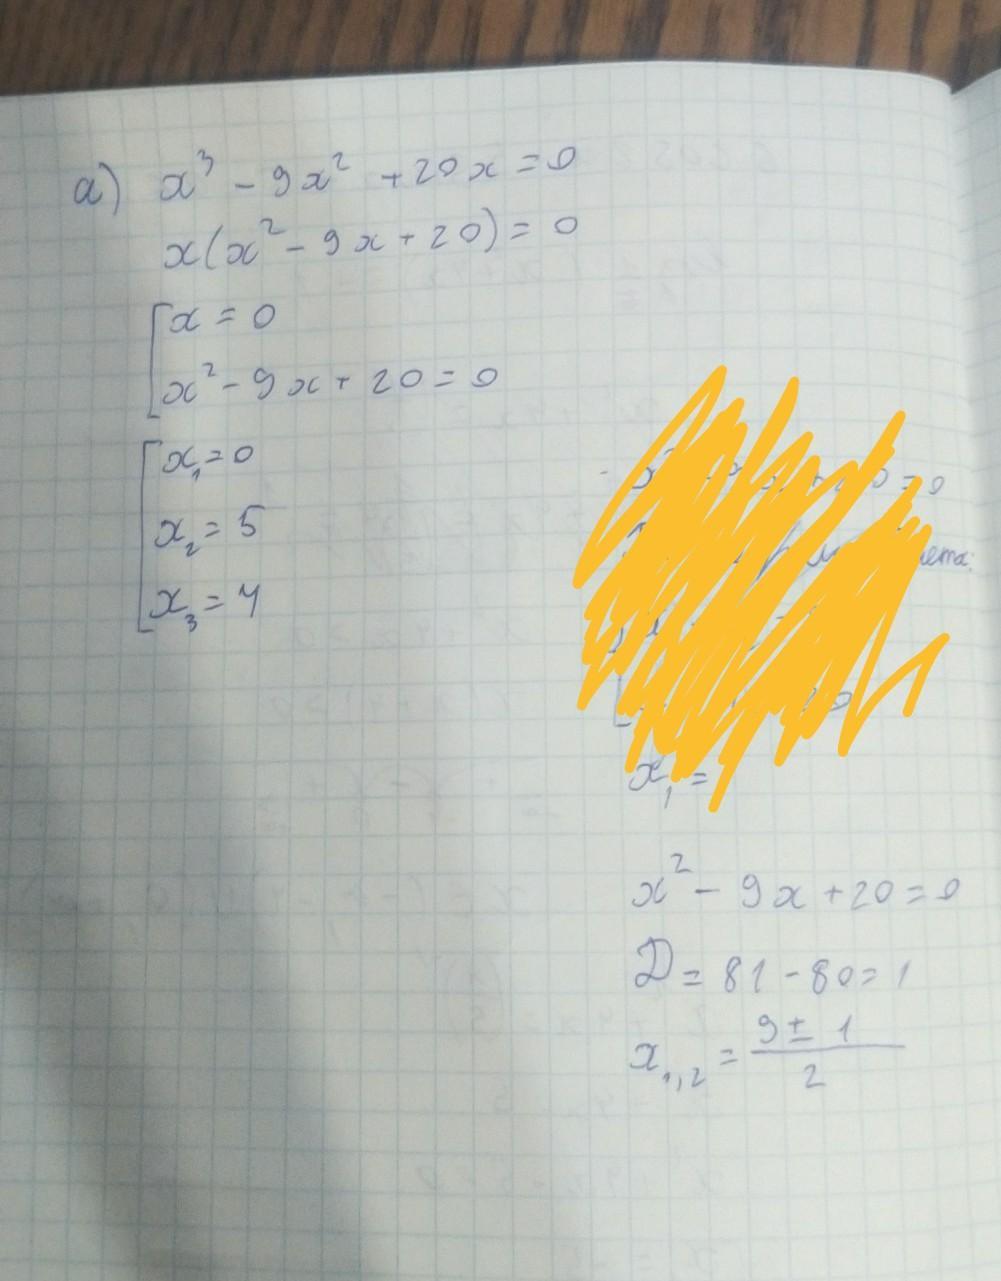 а) x³ - 9x² + 20x = 0
x(x² - 9x + 20) = 0
[x = 0
x² - 9x + 20 = 0
[x₁ = 0
x₂ = 5
x₃ = 4
= 0
x₁ =
x² - 9x + 20 = 0
D = 81 - 80 = 1
x₁,₂ = (9 ± 1) / 2